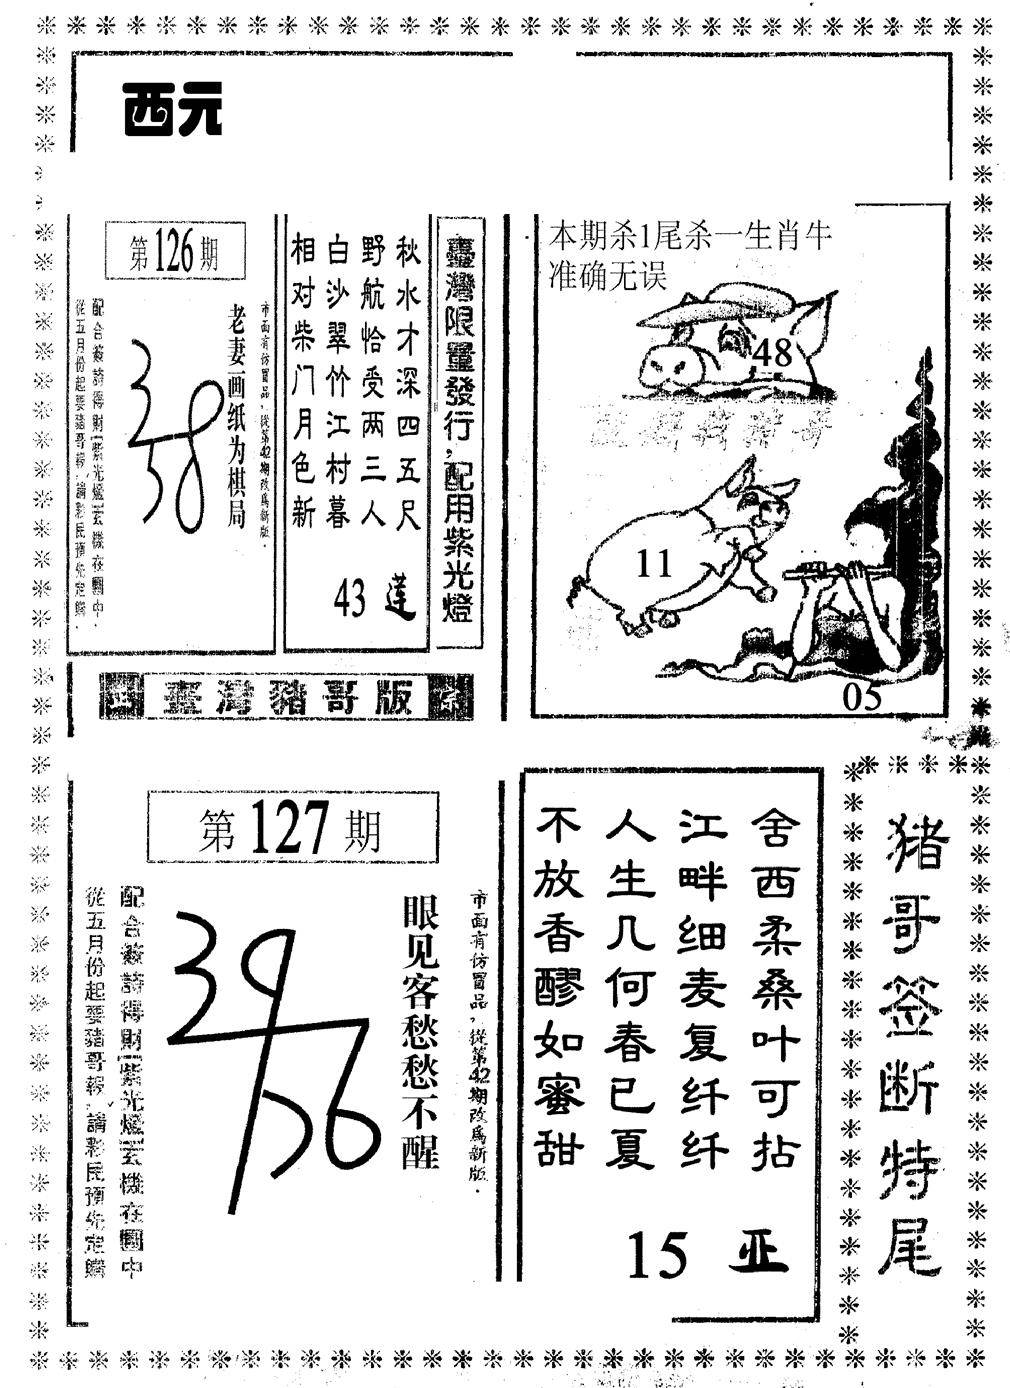 西元
第126期
老妻画纸为棋局
市面有仿冒品，從第42期改為新版．
配合簽詩得財 紫光燈 玄機在圖中．
從五月份起要豬哥報，請彩民預先定購．
秋水才深四五尺
野航恰受两三人
白沙翠竹江村暮
相对柴门月色新
43 莲
臺灣限量發行，配用紫光燈
本期杀1尾杀一生肖牛
准确无误
48
11
05
臺灣豬哥版
第127期
眼见客愁愁不醒
市面有仿冒品，從第42期改為新版．
配合簽詩得財 紫光燈 玄機在圖中
從五月份起要豬哥報，請彩民預先定購
舍西柔桑叶可拈
江畔细麦复纤纤
人生几何春已夏
不放香醪如蜜甜
15 亚
猪哥签断特尾